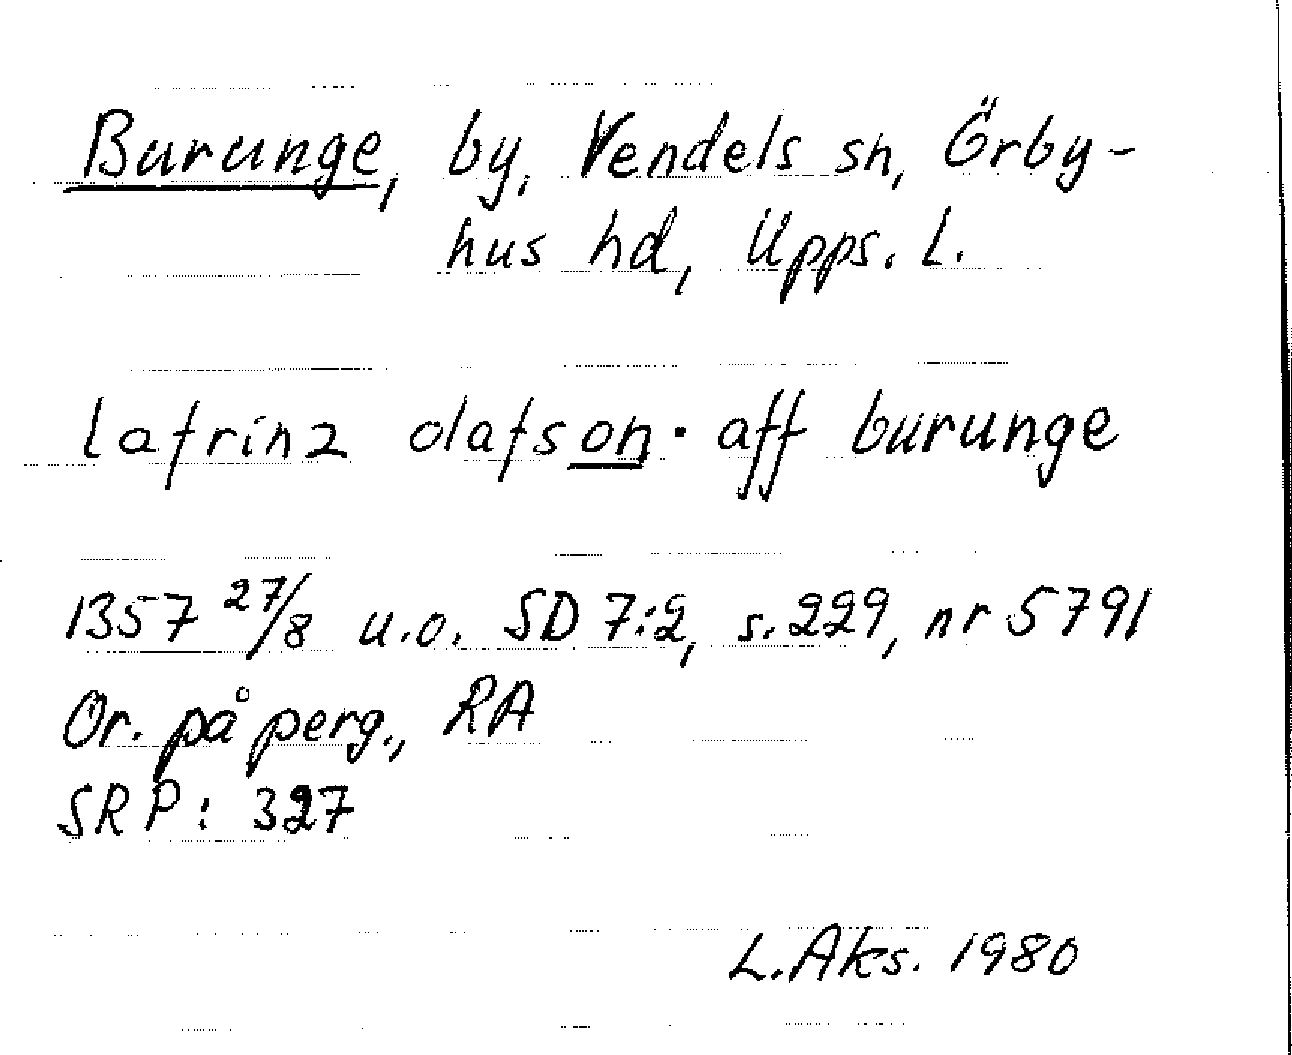 Burunge, by, Vendels sn, Örby-
hus hd, Upps. l.
lafrinz olafson · aff burunge
1357 27/8 u.o. SD 7:2, s. 229, nr 5791
Or. på perg., RA
SRP: 327
L. Aks. 1980